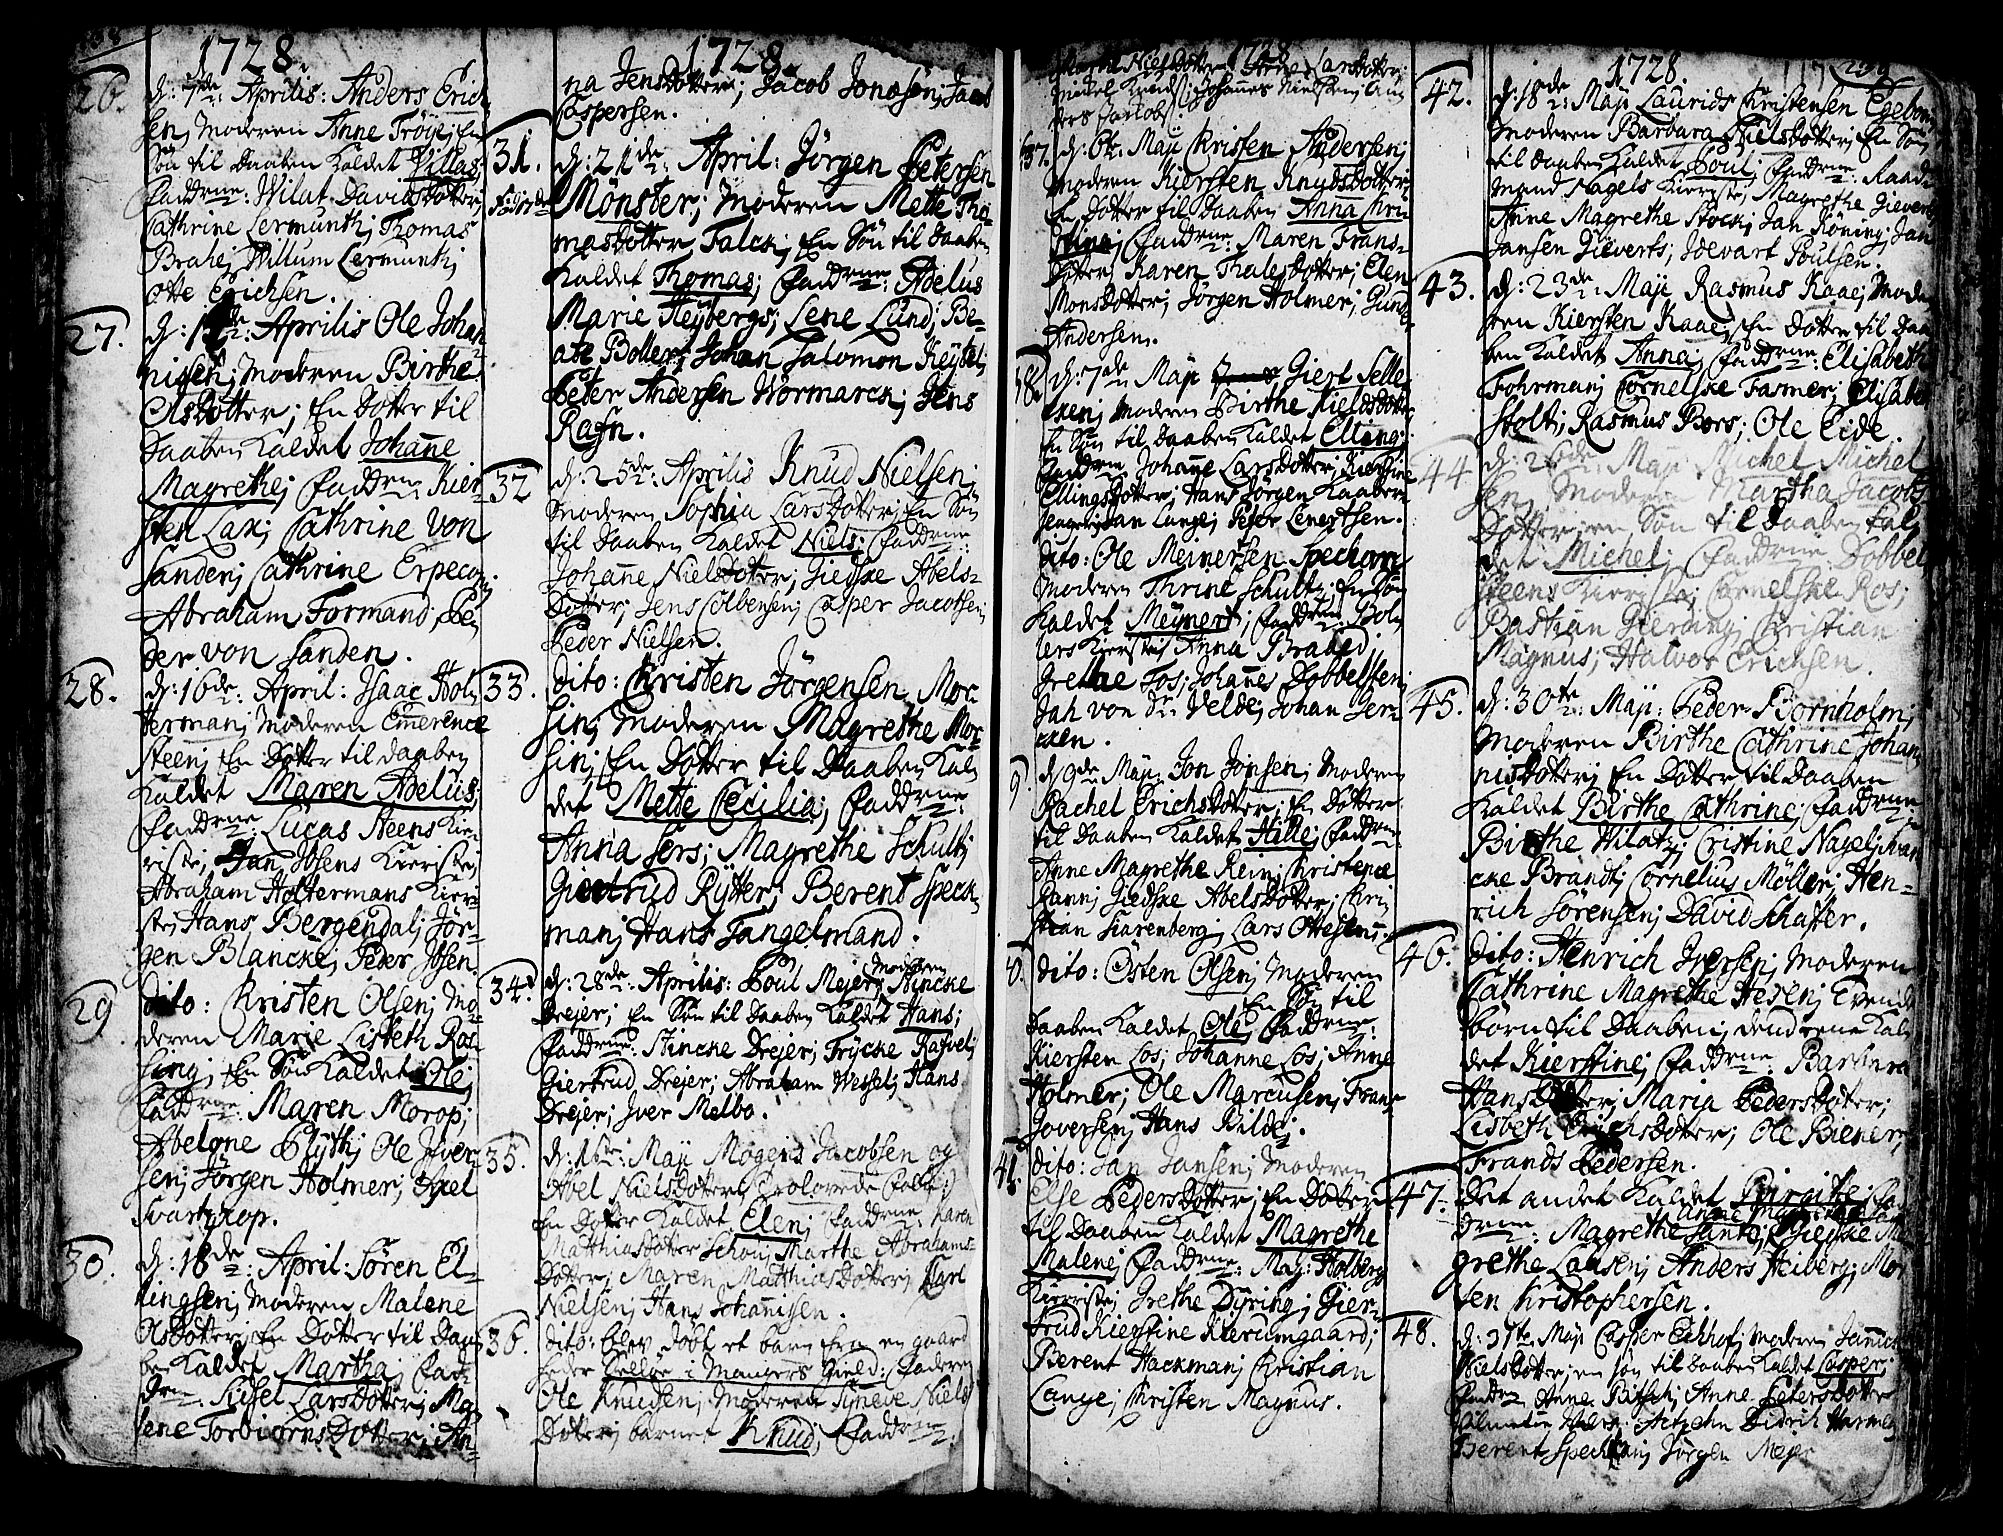 1728.
26.
d: 7de: Aprilis: Anders Erich
sen, Moderen Anne Tröye, En
Sön til Daaben Kaldet Villas;
Fadderne: Wilat Davidsdotter;
Cathrine Lermunth; Thomas
Brahe; Willum Lermunth;
Otte Erichsen.
27.
Aprilis Ole Johan
nisen; Moderen Birthe
Olsdotter; En Dotter til
Daaben Kaldet Johanne
Magrethe; Fadderne: Kier-
sten Lax; Cathrine von
Sanden; Cathrine Erpecom;
Abraham Formand; Pe-
der von Sanden.
28.
d: 16de: April: Isaac Hol-
terman; Moderen Emerence
Steen; En Dotter til Daaben
Kaldet Maren Abelus;
Fadderne: Lucas Steens Kie-
riste; Jan Ibsens Kieriste;
Abraham Holtermans Kieri-
ste; Hans Bergendal; Jör-
gen Blancke; Peder Ibsen.
29.
Dito: Kristen Olsen; Mo-
deren Marie Lisbeth Ros-
sing; En Sön Kaldet Ole;
Fadderne: Maren Morop;
Abelone Blyth; Ole Iver-
sen; Jörgen Holmer; Axel
Svartskop.
30.
d: 18de: April: Sören El-
lingsen; Moderen Malene
Olsdotter; En Dotter til Daa-
ben Kaldet Martha; Fad-
derne: Sidsel Larsdotter; Ma-
lene Torbiörnsdotter; An-
1728.
na Jensdotter; Jacob Jonasön; Jacob
Caspersen.
31.
d: 21de: April: Jörgen Petersen
Mönster; Moderen Mette Tho-
masdotter Falck; En Sön til Daaben
Kaldet Thomas; Fadderne: Abelus
Marie Heybergs; Lene Lund; Be-
ate Boller; Johan Salomon Keysel;
Peter Andersen Wormarck; Jens
Rafn.
32
d: 25de: Aprilis Knud Nielsen;
Moderen Sophia Larsdotter; En Sön
til Daaben Kaldet Niels; Fadderne:
Johanne Nielsdotter; Giedske Abels-
Dotter; Jens Colbensen; Casper Jacobsen;
Peder Nielsen.
33.
Dito: Kristen Jörgensen Mor-
sin; Moderen Magrethe Mor-
sin; En Dotter til Daaben Kal-
det Mette Cecilia; Fadderne:
Anna Sers; Magrethe Schult;
Giertrud Rytter; Berent Speck-
man; Hans Tangelmand.
34.
d: 28de: Aprilis: Poul Meyer; Moderen Stincke
Drejer; En Sön til Daaben Kaldet Hans;
Fadderne: Stincke Drejer; Frycke Rafvel;
Giertrud Drejer; Abraham Wessel; Hans
Drejer; Iver Melbo.
35.
Maji Mogens Jacobsen og
Abel Nielsdotter
En Dotter Kaldet Elen; Fadderne: Karen
Matthiasdotter Schou; Marthe Abrahams-
Dotter; Maren Matthiasdotter; Carl
Nielsen; Hans Johannissen.
36.
Dito: blev döbt et barn fra en gaard
heder Selloe i Mangers Gield: Faderen
Ole Knudsen; Moderen Syneve Niels-
Dotter; barnet Knud; Fadderne:
1728
Michel Knuds; Johannes Nielsen; An-
ders Jacobs.
37.
d: 6te: Maji Kristen Andersen;
Moderen Kiersten Knudsdotter;
En Dotter til Daaben Anna Chri-
stina; Fadderne: Maren Frans-
dotter; Karen Thalesdotter; Elen
Monsdotter; Jörgen Holmer; Gund
Andersen.
38.
d: 7de Maji Giert Selle
cken; Moderen Birthe Kieldsdotter
En Sön til Daaben Kaldet Elling;
Fadderne Johanne Larsdotter; Kierstine
Ellingsdotter; Hans Jörgen Kaaber;
Jan Lange; Peter Lenertsen.
Dito: Ole Meinertsen Speckom
Moderen Thrine Schult; En Sön
Kaldet Meynert; Fadderne: Bol-
lers Kierste; Anna Brabed;
Grethe Fos; Johannes Dobbelsten;
Jah von der Velde; Johan Ger-
cken.
9.
d: 9de Maji Jon Jonsen; Moderen
Rachel Erichsdotter; En Dotter
til Daaben Kaldet Hille; Fadderne
Anne Magrethe Rein; Christence
Rann; Giedske Abelsdotter; Chri-
stian Starenberg; Lars Ottesen.
0.
Dito: Östen Olsen; Moderen
En Sön til
Daaben Kaldet Ole; Fadderne:
Kiersten Los; Johanne Los; Anne
Holmer; Ole Marcusen; Frans
Joversen; Hans Bilde.
41.
Dito: Jan Jansen; Moderen
Else Pedersdotter; En Dotter
til Daaben Kaldet Magrethe
Malene; Fadderne: Maj: Holberg
Kieriste; Grethe Dyring; Gier-
trud Kierstine Kierumgaard;
Berent Hackman; Christian
Lange; Kristen Magnus.
1728.
239
42.
d: 18de: Maji Laurids Kristensen Egeborg
Moderen Barbara Nielsdotter; En Sön
til Daaben Kaldet Poul; Fadderne: Raad-
mand Nagels Kieriste; Magrethe Gieverts
Anne Magrethe Stock; Jan Köning; Jan
Jansen Gieverts; Idevart Poulsen.
43.
d: 23de: Maji Rasmus Kaae; Mode-
ren Kiersten Kaae; En Dotter til Daa-
ben Kaldet Anna; Fadderne: Elisabeth
Fohrman; Cornelske Farmer; Elisabet
Stolt; Rasmus Rors; Ole Eide.
44
Maji Michel Michel
sen; Moderen Martha Jacobs
Dotter; en Sön til Daaben Kal-
det Michel; Fadderne Dobbel
steens Kieriste; Cornelske Ros;
Bastian Gierding; Christian
Magnus; Halvor Erichsen.
45.
d: 30te: Maji: Peder Bornholm;
Moderen Birthe Cathrine Johan-
nisdotter; En Dotter til Daaben
Kaldet Birthe Cathrine; Fadderne
Birthe Wilatz; Cristine Nagel;
cke Brandt; Cornelius Möller; Hen-
rich Sörensen; David Schaffer.
46.
Dito: Henrich Iversen; Moderen
Cathrine Magrethe Heven; Tvende
börn til Daaben; den förene Kal-
det Kierstine; Fadderne: Barbara
Hansdotter; Maria Pedersdotter;
Lisbeth Erichsdotter; Ole Biener;
Frands Pedersen.
47.
Det andet Kaldet Birgithe; Fa-
derne: Magrethe Santo; Giedske Ma-
grethe Lausen; Anders Heiberg; Mor-
ten Christophersen.
48.
d: 31te Maji Casper Eckhof; Moderen Jannicke
Nielsdotter; en sön til Daaben Kaldet Casper;
Fadderne Anne Pitsch; Anne Petersdotter
Didrich Harmens
Berent Speckman; Jörgen Mejer